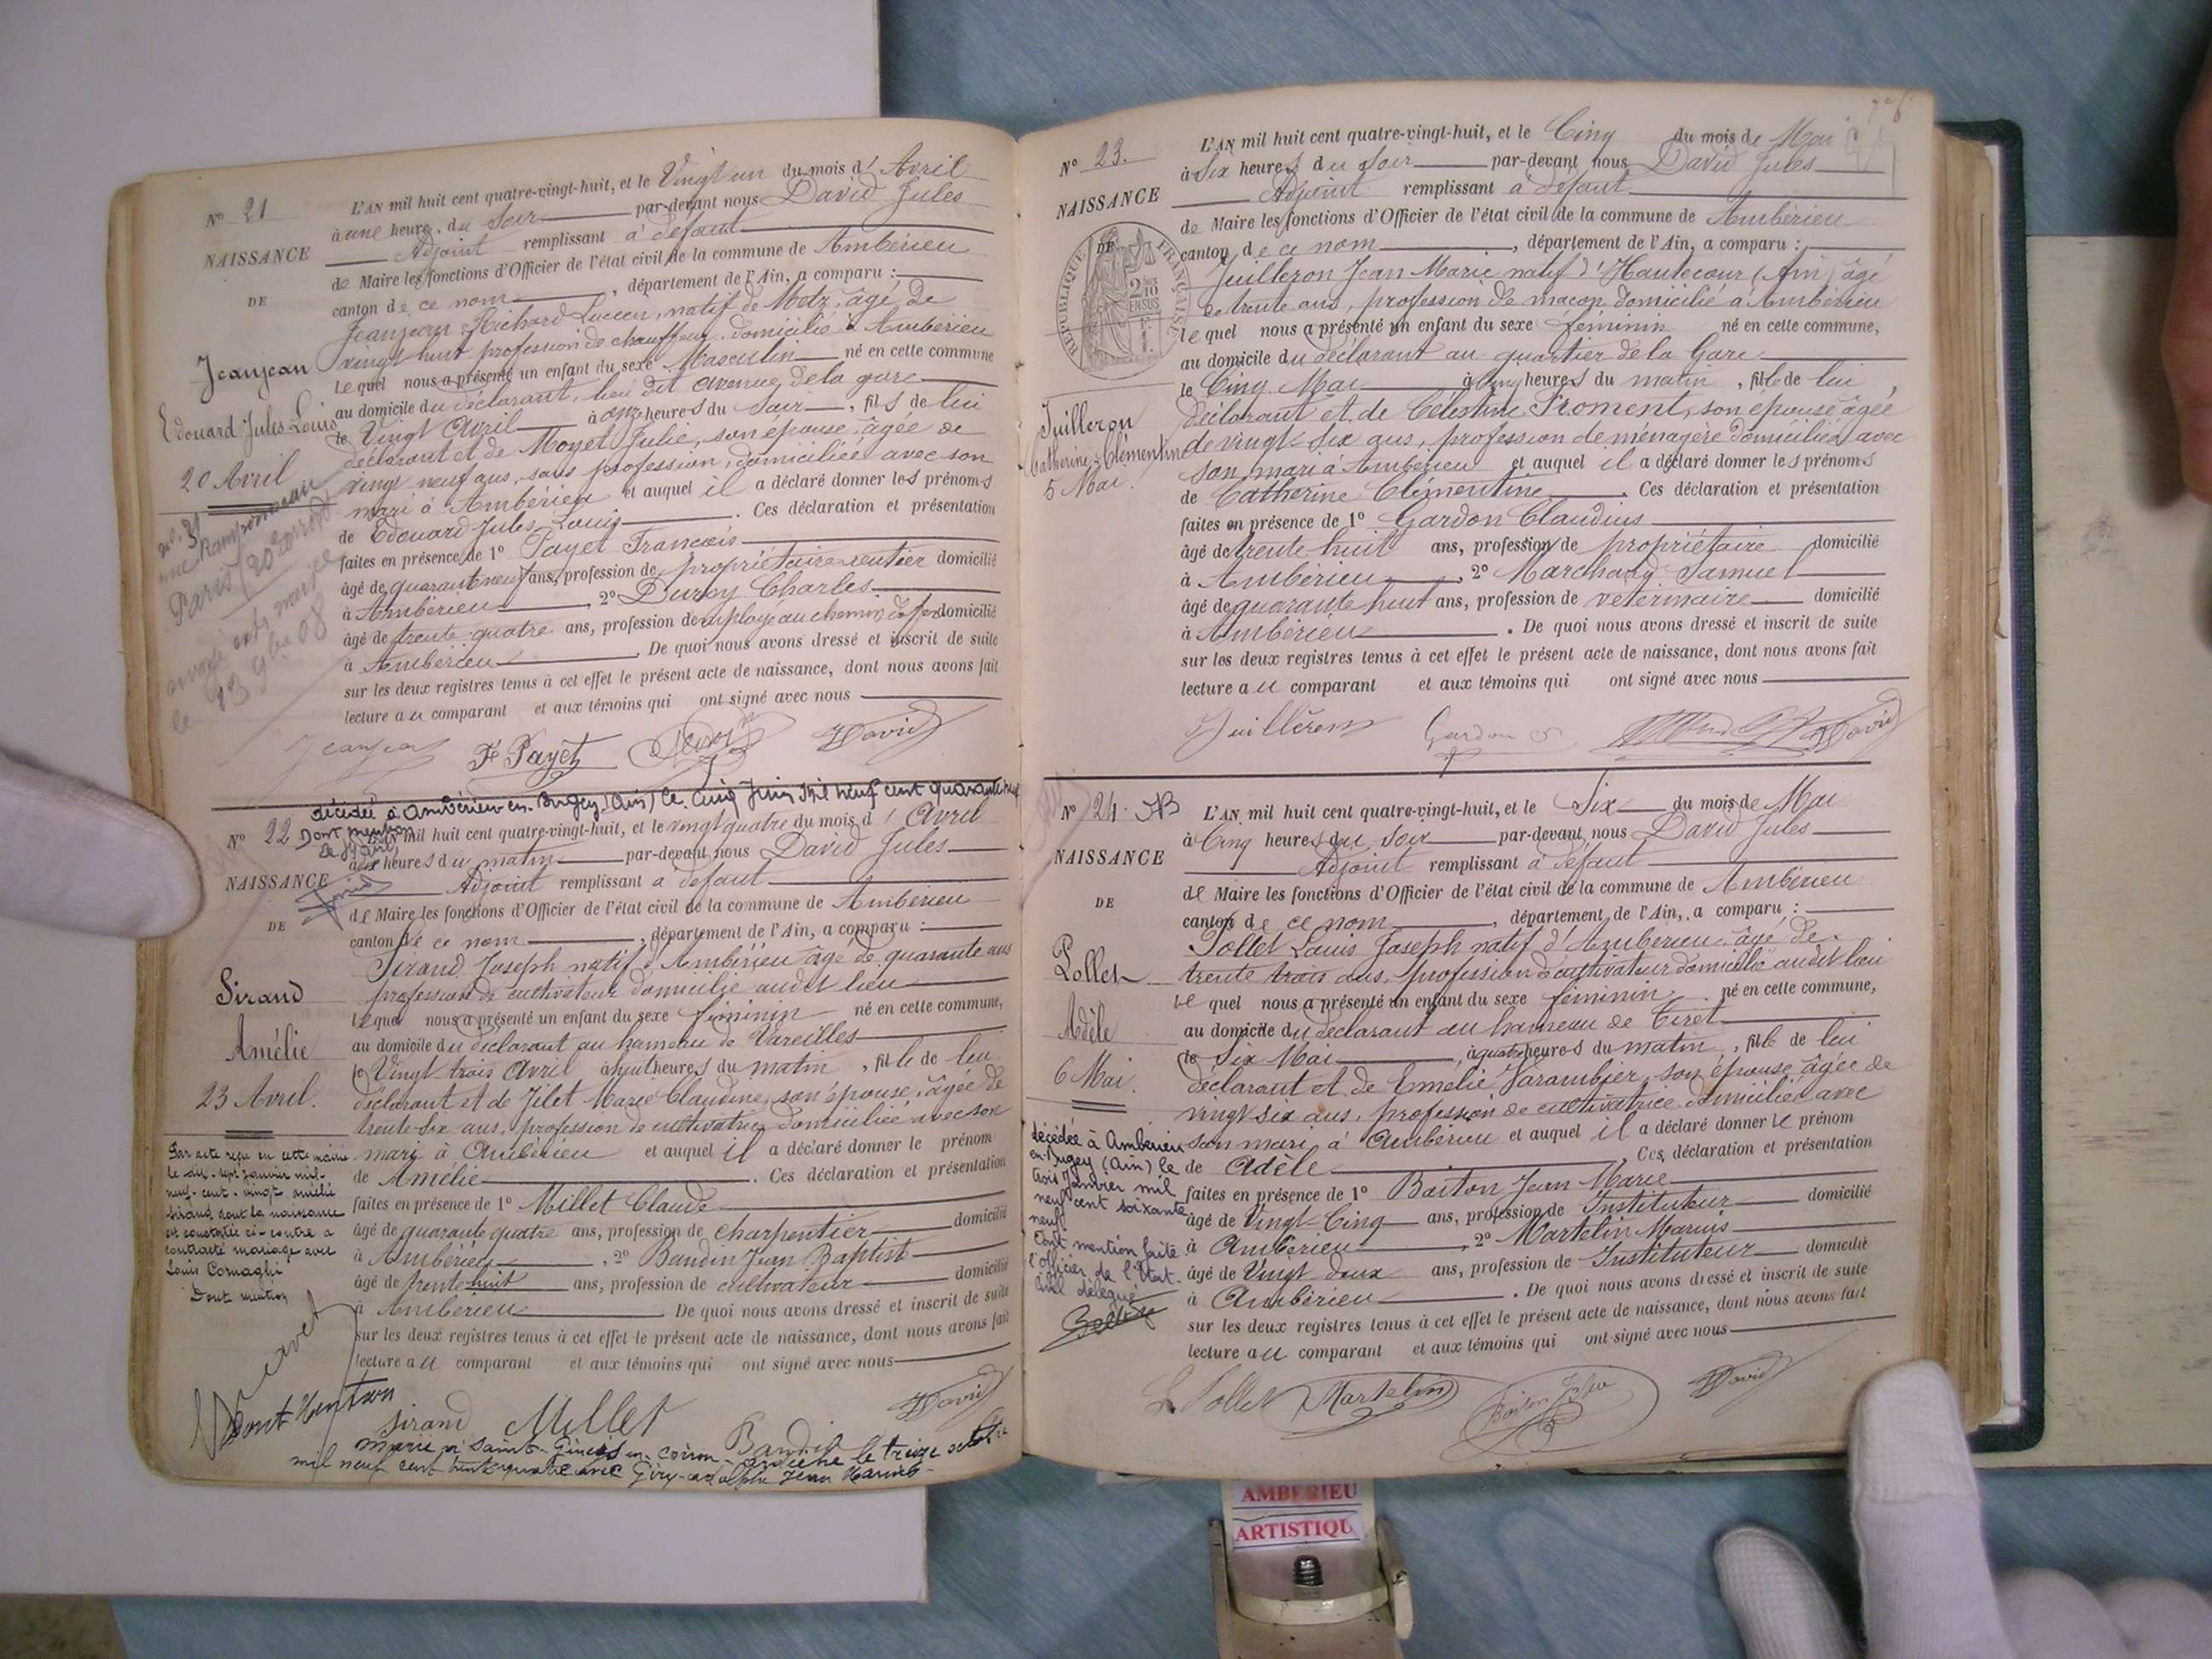 N° 21
NAISSANCE
DE
Jeanjean
Edouard Jules Louis
20 Avril
L'AN mil huit cent quatre-vingt-huit, et le Vingt un du mois d' Avril
à une heure, du Soir par-devant nous David Jules
Adjoint remplissant à défaut
de Maire les fonctions d'Officier de l'état civil de la commune de Ambérieu
canton de ce nom, département de l'Ain, a comparu :
Jeanjean Richard Lucien, natif de Metz, âgé de
vingt huit profession de chauffeur, domicilié à Ambérieu
Lequel nous a présenté un enfant du sexe Masculin né en cette commune
au domicile du déclarant, lieu dit avenue de la gare
le Vingt Avril à onze heures du Soir, fils de lui
déclarant et de Monet Julie, son épouse, âgée de
vingt neuf ans, sans profession, domiciliée avec son
mari à Ambérieu et auquel il a déclaré donner les prénoms
de Edouard Jules Louis. Ces déclaration et présentation
faites en présence de 1° Payet François
âgé de quarante neuf ans, profession de propriétaire rentier domicilié
à Ambérieu, 2° Durey Charles
âgé de trente quatre ans, profession de employé au chemin de fer domicilié
à Ambérieu. De quoi nous avons dressé et inscrit de suite
sur les deux registres tenus à cet effet le présent acte de naissance, dont nous avons fait
lecture au comparant et aux témoins qui ont signé avec nous
Jeanjean Fs Payet David
Paris (20e
le 13 9bre 08
décédée à Ambérieu-en-Bugey (Ain) le cinq Juin mil neuf cent quarante
Dont mention
N° 22
NAISSANCE
DE
Sirand
Amélie
23 Avril.
L'AN mil huit cent quatre-vingt-huit, et le vingt quatre du mois d' Avril
à dix heures du matin par-devant nous David Jules
Adjoint remplissant à défaut
de Maire les fonctions d'Officier de l'état civil de la commune de Ambérieu
canton de ce nom, département de l'Ain, a comparu :
Sirand Joseph natif d'Ambérieu âgé de quarante ans
profession de cultivateur domicilié audit lieu
Lequel nous a présenté un enfant du sexe féminin né en cette commune,
au domicile du déclarant au hameau de Vareilles
le Vingt trois Avril à huit heures du matin, fille de lui
déclarant et de Jilet Marie Claudine, son épouse, âgée de
trente six ans, profession de cultivatrice domiciliée avec son
mari à Ambérieu et auquel il a déclaré donner le prénom
de Amélie. Ces déclaration et présentation
faites en présence de 1° Millet Claude
âgé de quarante quatre ans, profession de charpentier domicilié
à Ambérieu, 2° Baudin Jean Baptist
âgé de trente huit ans, profession de cultivateur domicilié
à Ambérieu De quoi nous avons dressé et inscrit de suite
sur les deux registres tenus à cet effet le présent acte de naissance, dont nous avons fait
lecture au comparant et aux témoins qui ont signé avec nous
Par acte reçu en cette mairie
le dix-sept janvier mil-
neuf-cent-vingt Amélie
Sirand dont la naissance
est constatée ci-contre a
contracté mariage avec
Louis Cornaghi
Dont mention
Sirand Millet Baudin David
Dont Mention
mariée à Saint-Ginejs-en-Coiron-Ardèche le treize octobre
mil neuf cent trente quatre avec Géry-Adolphe Jean Marius-
N° 23.
NAISSANCE
DE
RÉPUBLIQUE FRANÇAISE
2/10 EN SUS
Juilleron
Catherine-Clémentine
5 Mai.
L'AN mil huit cent quatre-vingt-huit, et le Cinq du mois de Mai
à Six heures du Soir par-devant nous David Jules
Adjoint remplissant à défaut
de Maire les fonctions d'Officier de l'état civil de la commune de Ambérieu
canton de ce nom, département de l'Ain, a comparu :
Juilleron Jean Marie natif d'Hautecour (Ain) âgé
de trente ans, profession de maçon domicilié à Ambérieu
lequel nous a présenté un enfant du sexe féminin né en cette commune,
au domicile du déclarant au quartier de la Gare
le Cinq Mai à cinq heures du matin, fille de lui,
déclarant et de Célestine Froment, son épouse âgée
de vingt-six ans, profession de ménagère domiciliée avec
son mari à Ambérieu et auquel il a déclaré donner les prénoms
de Catherine Clémentine. Ces déclaration et présentation
faites en présence de 1° Gardon Claudius
âgé de trente-huit ans, profession de propriétaire domicilié
à Ambérieu, 2° Marchand Samuel
âgé de quarante huit ans, profession de vétérinaire domicilié
à Ambérieu. De quoi nous avons dressé et inscrit de suite
sur les deux registres tenus à cet effet le présent acte de naissance, dont nous avons fait
lecture au comparant et aux témoins qui ont signé avec nous
Juilleron Gardon David
N° 24.
NAISSANCE
DE
Pollet
Adèle
6 Mai.
L'AN mil huit cent quatre-vingt-huit, et le Six du mois de Mai
à Cinq heures du soir par-devant nous David Jules
Adjoint remplissant à défaut
de Maire les fonctions d'Officier de l'état civil de la commune de Ambérieu
canton de ce nom, département de l'Ain, a comparu :
Pollet Louis Joseph natif d'Ambérieu, âgé de
trente trois ans, profession de cultivateur domicilié audit lieu
Lequel nous a présenté un enfant du sexe féminin né en cette commune,
au domicile du déclarant au hameau de Tiret
le Six Mai à quatre heures du matin, fille de lui
déclarant et de Emélie Varambier, son épouse âgée de
vingt six ans, profession de cultivatrice domiciliée avec
son mari à Ambérieu et auquel il a déclaré donner le prénom
de Adèle. Ces déclaration et présentation
faites en présence de 1° Baiton Jean Marie
âgé de Vingt-Cinq ans, profession de Instituteur domicilié
à Ambérieu, 2° Martelin Marius
âgé de Vingt deux ans, profession de Instituteur domicilié
à Ambérieu. De quoi nous avons dressé et inscrit de suite
sur les deux registres tenus à cet effet le présent acte de naissance, dont nous avons fait
lecture au comparant et aux témoins qui ont signé avec nous
décédée à Ambérieu
en-Bugey (Ain) le
trois Janvier mil
neuf cent soixante
neuf.
Dont mention faite
l'officier de l'état-
civil délégué
L Pollet Martelin David
AMBERIEU
ARTISTIQU